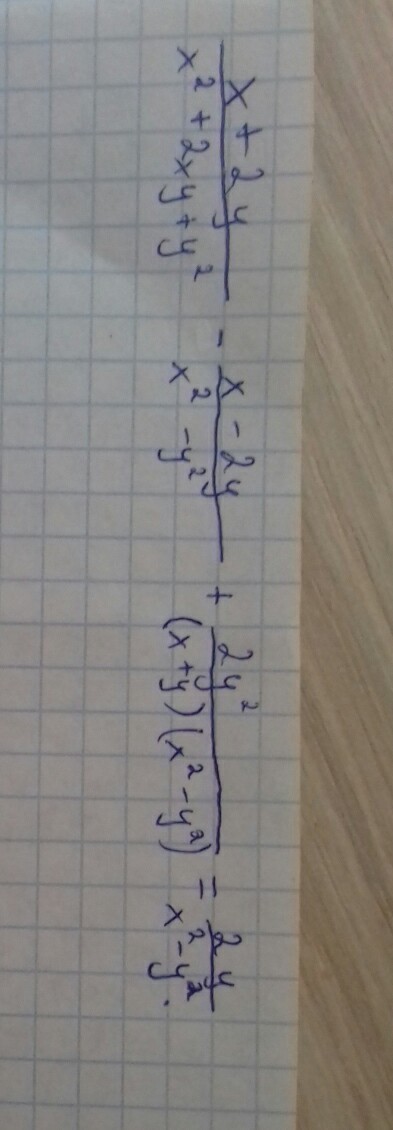 x + 2y / x² + 2xy + y² - x - 2y / x² - y² + 2y² / (x + y)(x² - y²) = 2y / x² - y².